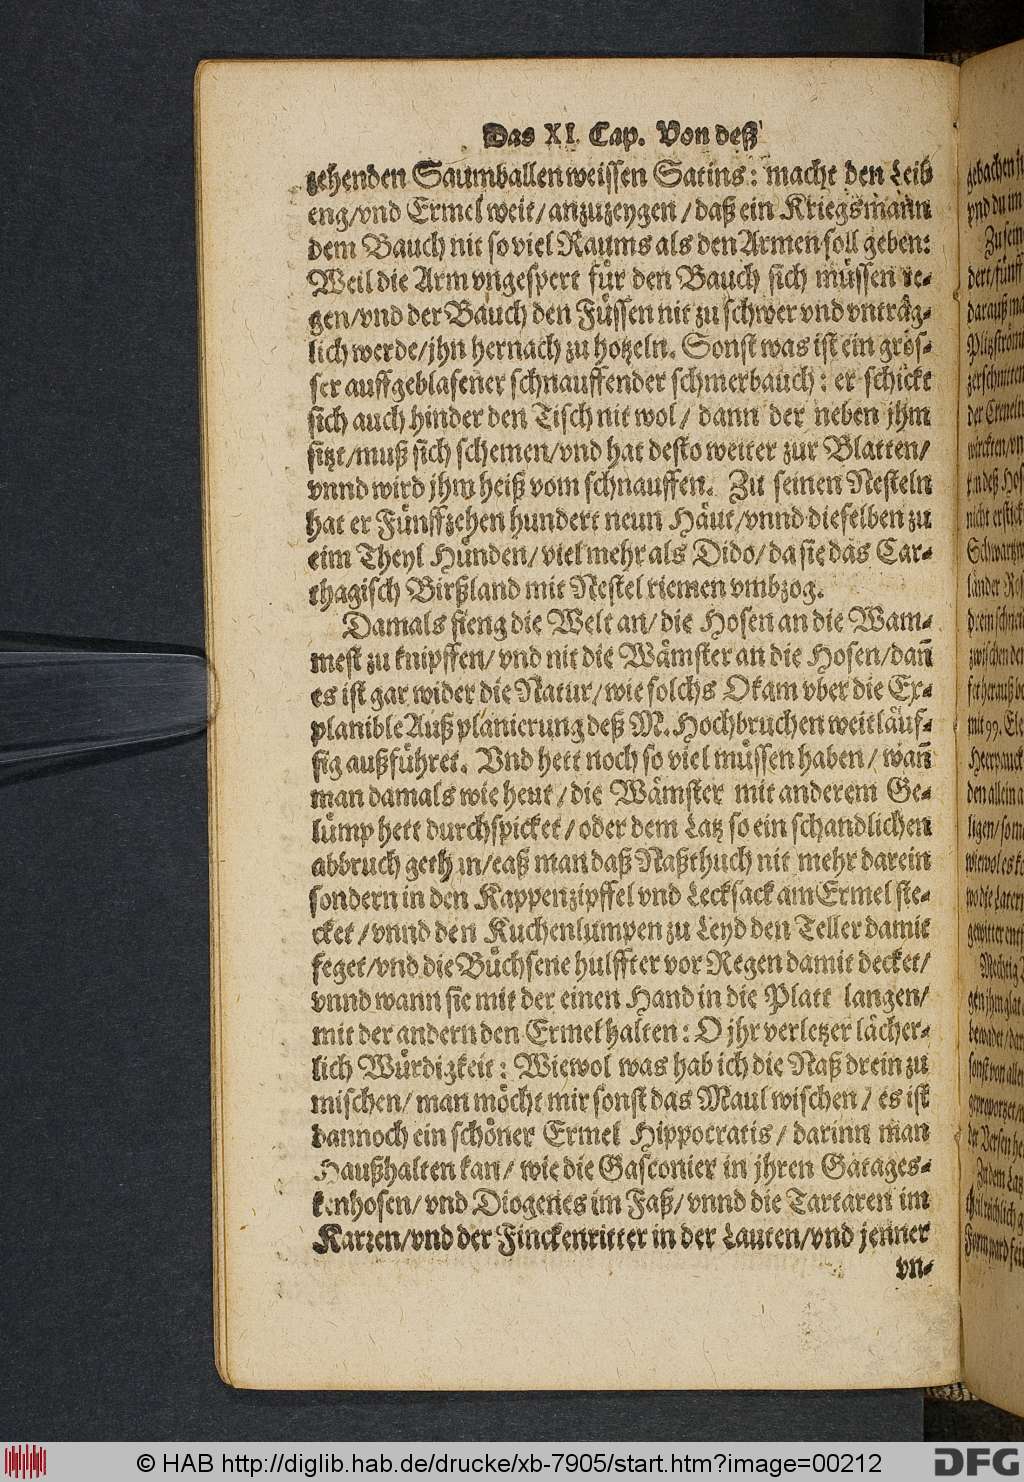 Das XI. Cap. Von deß
zehenden Saumballen weissen Satins: macht den Leib
eng/vnd Ermel weit/anzuzeygen/daß ein Kriegsmann
dem Bauch nit so viel Raums als den Armen soll geben:
Weil die Arm vngespert für den Bauch sich müssen re-
gen/vnd der Bauch den Füssen nit zu schwer vnd vnträg-
lich werde/jhn hernach zu hotzeln. Sonst was ist ein grös-
ser auffgeblasener schnauffender schmerbauch: er schickt
sich auch hinder den Tisch nit wol/ dann der neben jhm
sitzt/muß sich schemen/vnd hat desto weiter zur Blatten/
vnnd wird jhm heiß vom schnauffen. Zu seinen Nesteln
hat er Fünffzehen hundert neun Häut/vnnd dieselben zu
eim Theyl Hünden/viel mehr als Dido/da sie das Car-
thagisch Birßland mit Nestel riemen vmbzog.
Damals fieng die Welt an/die Hosen an die Wam-
mest zu knipffen/vnd nit die Wämster an die Hosen/dañ
es ist gar wider die Natur/wie solchs Okam vber die Ex-
planible Außplanierung deß M. Hochbruchen weitläuf-
fig außführet. Vnd hett noch so viel müssen haben/wañ
man damals wie heut/die Wämster mit anderem Ge-
lümp hett durchspicket/oder dem Latz so ein schandlichen
abbruch geth n/daß man daß Naßthuch nit mehr darein
sondern in den Kappenzipffel vnd Lecksack am Ermel ste-
cket/vnnd den Kuchenlumpen zu Leyd den Teller damit
feget/vnd die Büchsene hulffter vor Regen damit decket/
vnnd wann sie mit der einen Hand in die Platt langen/
mit der andern den Ermel halten: O jhr verletzer lächer-
lich Würdigkeit: Wiewol was hab ich die Naß drein zu
mischen/man möcht mir sonst das Maul wischen/es ist
dannoch ein schöner Ermel Hippocratis/darinn man
Haußhalten kan/wie die Gasconier in jhren Gatages-
kenhosen/vnd Diogenes im Faß/vnnd die Tartaren im
Karren/vnd der Finckenritter in der Lauten/vnd jenner
vn-
© HAB http://diglib.hab.de/drucke/xb-7905/start.htm?image=00212
DFG